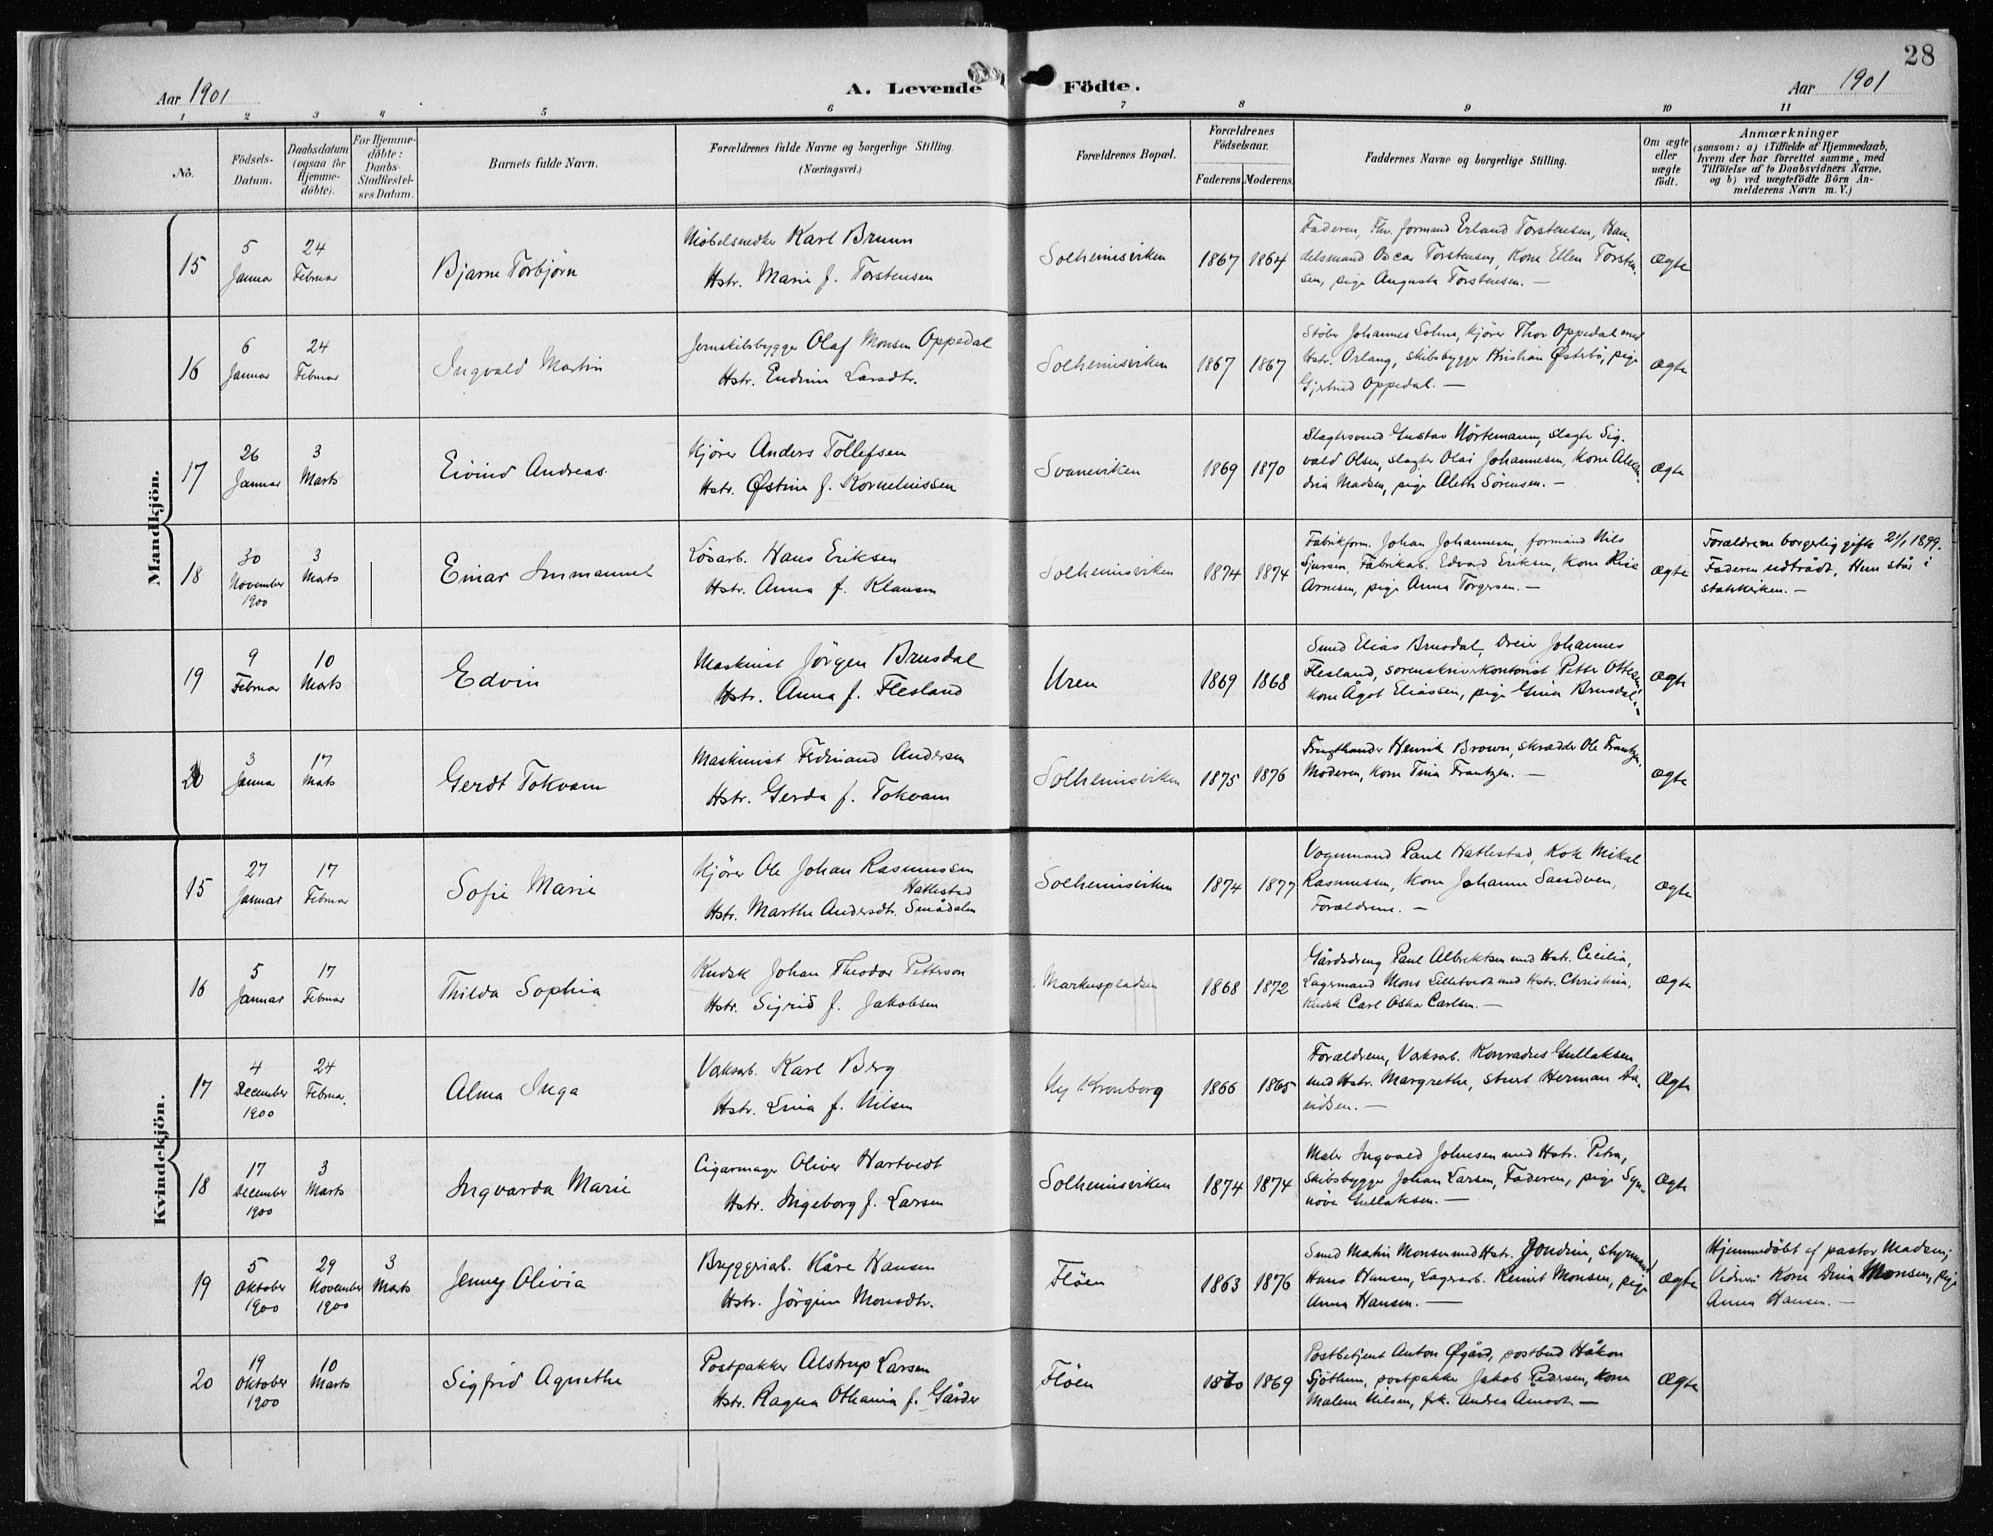 28
Aar 1901
A. Levende Födte.
Aar 1901
1 2 3 4 5 6 7 8 9 10 11
No.
Födsels-Datum.
Daabsdatum (ogsaa for Hjemmedöbte).
For Hjemmedöbte: Daabs-Stadfestelses Datum.
Barnets fulde Navn.
Forældrenes fulde Navne og borgerlige Stilling.
(Næringsvei.)
Forældrenes Bopæl.
Forældrenes Födselsaar.
Faderens Moderens
Faddernes Navne og borgerlige Stilling.
Om ægte eller uægte födt.
Anmærkninger
(saasom: a) i Tilfælde af Hjemmedaab,
hvem der har forrettet samme, med
Tilföielse af to Daabsvidners Navne,
og b) ved uægtefödte Börn Anmelderens Navn m. V.)
Mandkjön.
15 5 Januar 24 Februar Bjarne Torbjörn
Møbelsnedker Karl Bruun
Hstr. Marie f. Torstensen
Solheimsviken 1867 1864
Faderen, Formand Erland Torstensen, Han-
delsmand Oscar Torstensen, Kone Ellen Torsten-
sen, pige Augusta Torstensen. —
Ægte
16 6 Januar 24 Februar Ingvald Martin
Jernskibsbygger Olaf Monsen Oppedal
Hstr. Endrine Larsdtr.
Solheimsviken 1867 1867
Støber Johannes Solune, Kjører Thor Oppedal med
Hstr. Orlaug, skibsbygger Kristian Østebö, pige
Gjertrud Oppedal. —
Ægte
17 26 Januar 3 Marts Eivind Andreas
Kjörer Anders Tollefsen
Hstr. Østine f. Korneliussen
Svaneviken 1869 1870
Slagtersvend Gustav Nörtemann, slagter Sig-
vald Olsen, slagter Olai Johannesen, Kone Alexan-
dria Madsen, pige Aleth Sörensen. —
Ægte
18 30 November 1900 3 Marts Einar Immanuel
Lösarb. Hans Eriksen
Hstr. Anna f. Klausen
Solheimsviken 1874 1874
Fabrikform. Johan Johannesen, formand Nils
Sjursen, Fabrikarb. Edvard Eriksen, Kone Risa
Arnesen, pige Anna Torgersen. —
Ægte
Forældrene borgerlig gifte 21/1 1899.
Faderen udtrådt, Hun står i
statskirken. —
19 9 Februar 10 Marts Edvin
Maskinist Jörgen Brusdal
Hstr. Anna f. Flesland
Uren 1869 1868
Smed Elias Brusdal, Dreier Johannes
Flesland, sorenskriverkontorist Petter Ottesen,
Kone Ågot Eliassen, pige Gina Brusdal. —
Ægte
20 3 Januar 17 Marts Gerdt Tokvam
Maskinist Ferdinand Andersen
Hstr. Gerda f. Tokvam
Solheimsviken 1875 1876
Frugthandler Henrik Brown, skrædder Ole Frantzen,
Moderen, Kone Tina Frantzen. —
Ægte
Kvindekjön.
15 27 Januar 17 Februar Sofie Marie
Kjörer Ole Johan Rasmussen
Hatlestad
Hstr. Marthe Andersdtr. Smådalen
Solheimsviken 1874 1877
Vognmand Paul Hatlestad, Kok Mikal
Rasmussen, Kone Johanne Sandven,
Forældrene. —
Ægte
16 5 Januar 17 Februar Thilda Sophia
Kudsk Johan Theodor Petterson
Hstr. Sigrid f. Jakobsen
Markuspladsen 1868 1872
Gårdsdreng Paul Albrektsen med Hstr. Cecilia,
Lagermand Mons Lilletvedt med Hstr. Christine,
Kudsk Carl Oskar Carlsen. —
Ægte
17 4 December 1900 24 Februar Alma Inga
Væksarb. Karl Berg
Hstr. Lina f. Nilsen
Ny Kronborg 1866 1865
Forældrene, Væksarb. Konradus Gullaksen
med Hstr. Margrethe, stuert Herman Aa-
midsen. —
Ægte
18 17 December 1900 3 Marts Ingvarda Marie
Cigarmager Oliver Hartvedt
Hstr. Ingeborg f. Larsen
Solheimsviken 1874 1874
Maler Ingvald Johnesen med Hstr. Petra,
Skibsbygger Johan Larsen, Faderen, pige Syn-
növe Gullaksen. —
Ægte
19 5 Oktober 1900 29 November 1900 3 Marts Jenny Olivia
Bryggeriarb. Kåre Hansen
Hstr. Jörgine Monsdtr.
Flöen 1863 1876
Smed Martin Monsen med Hstr. Jondine, styrmand
Hans Hansen, Lagerarb. Reinert Monsen, pige
Anna Hansen. —
Ægte
Hjemmedöbt af pastor Madsen;
Vidner: Kone Dina Monsen, pige
Anna Hansen. —
20 19 Oktober 1900 10 Marts Sigfrid Agnethe
Postpakker Alstrup Larsen
Hstr. Ragna Othania f. Gårder
Flöen 1870 1869
Postbetjent Anton Øgård, postbud Håkon
Sjöthun, postpakker Jakob Pedersen, Kone
Malene Nilsen, frk. Andrea Amodt. —
Ægte